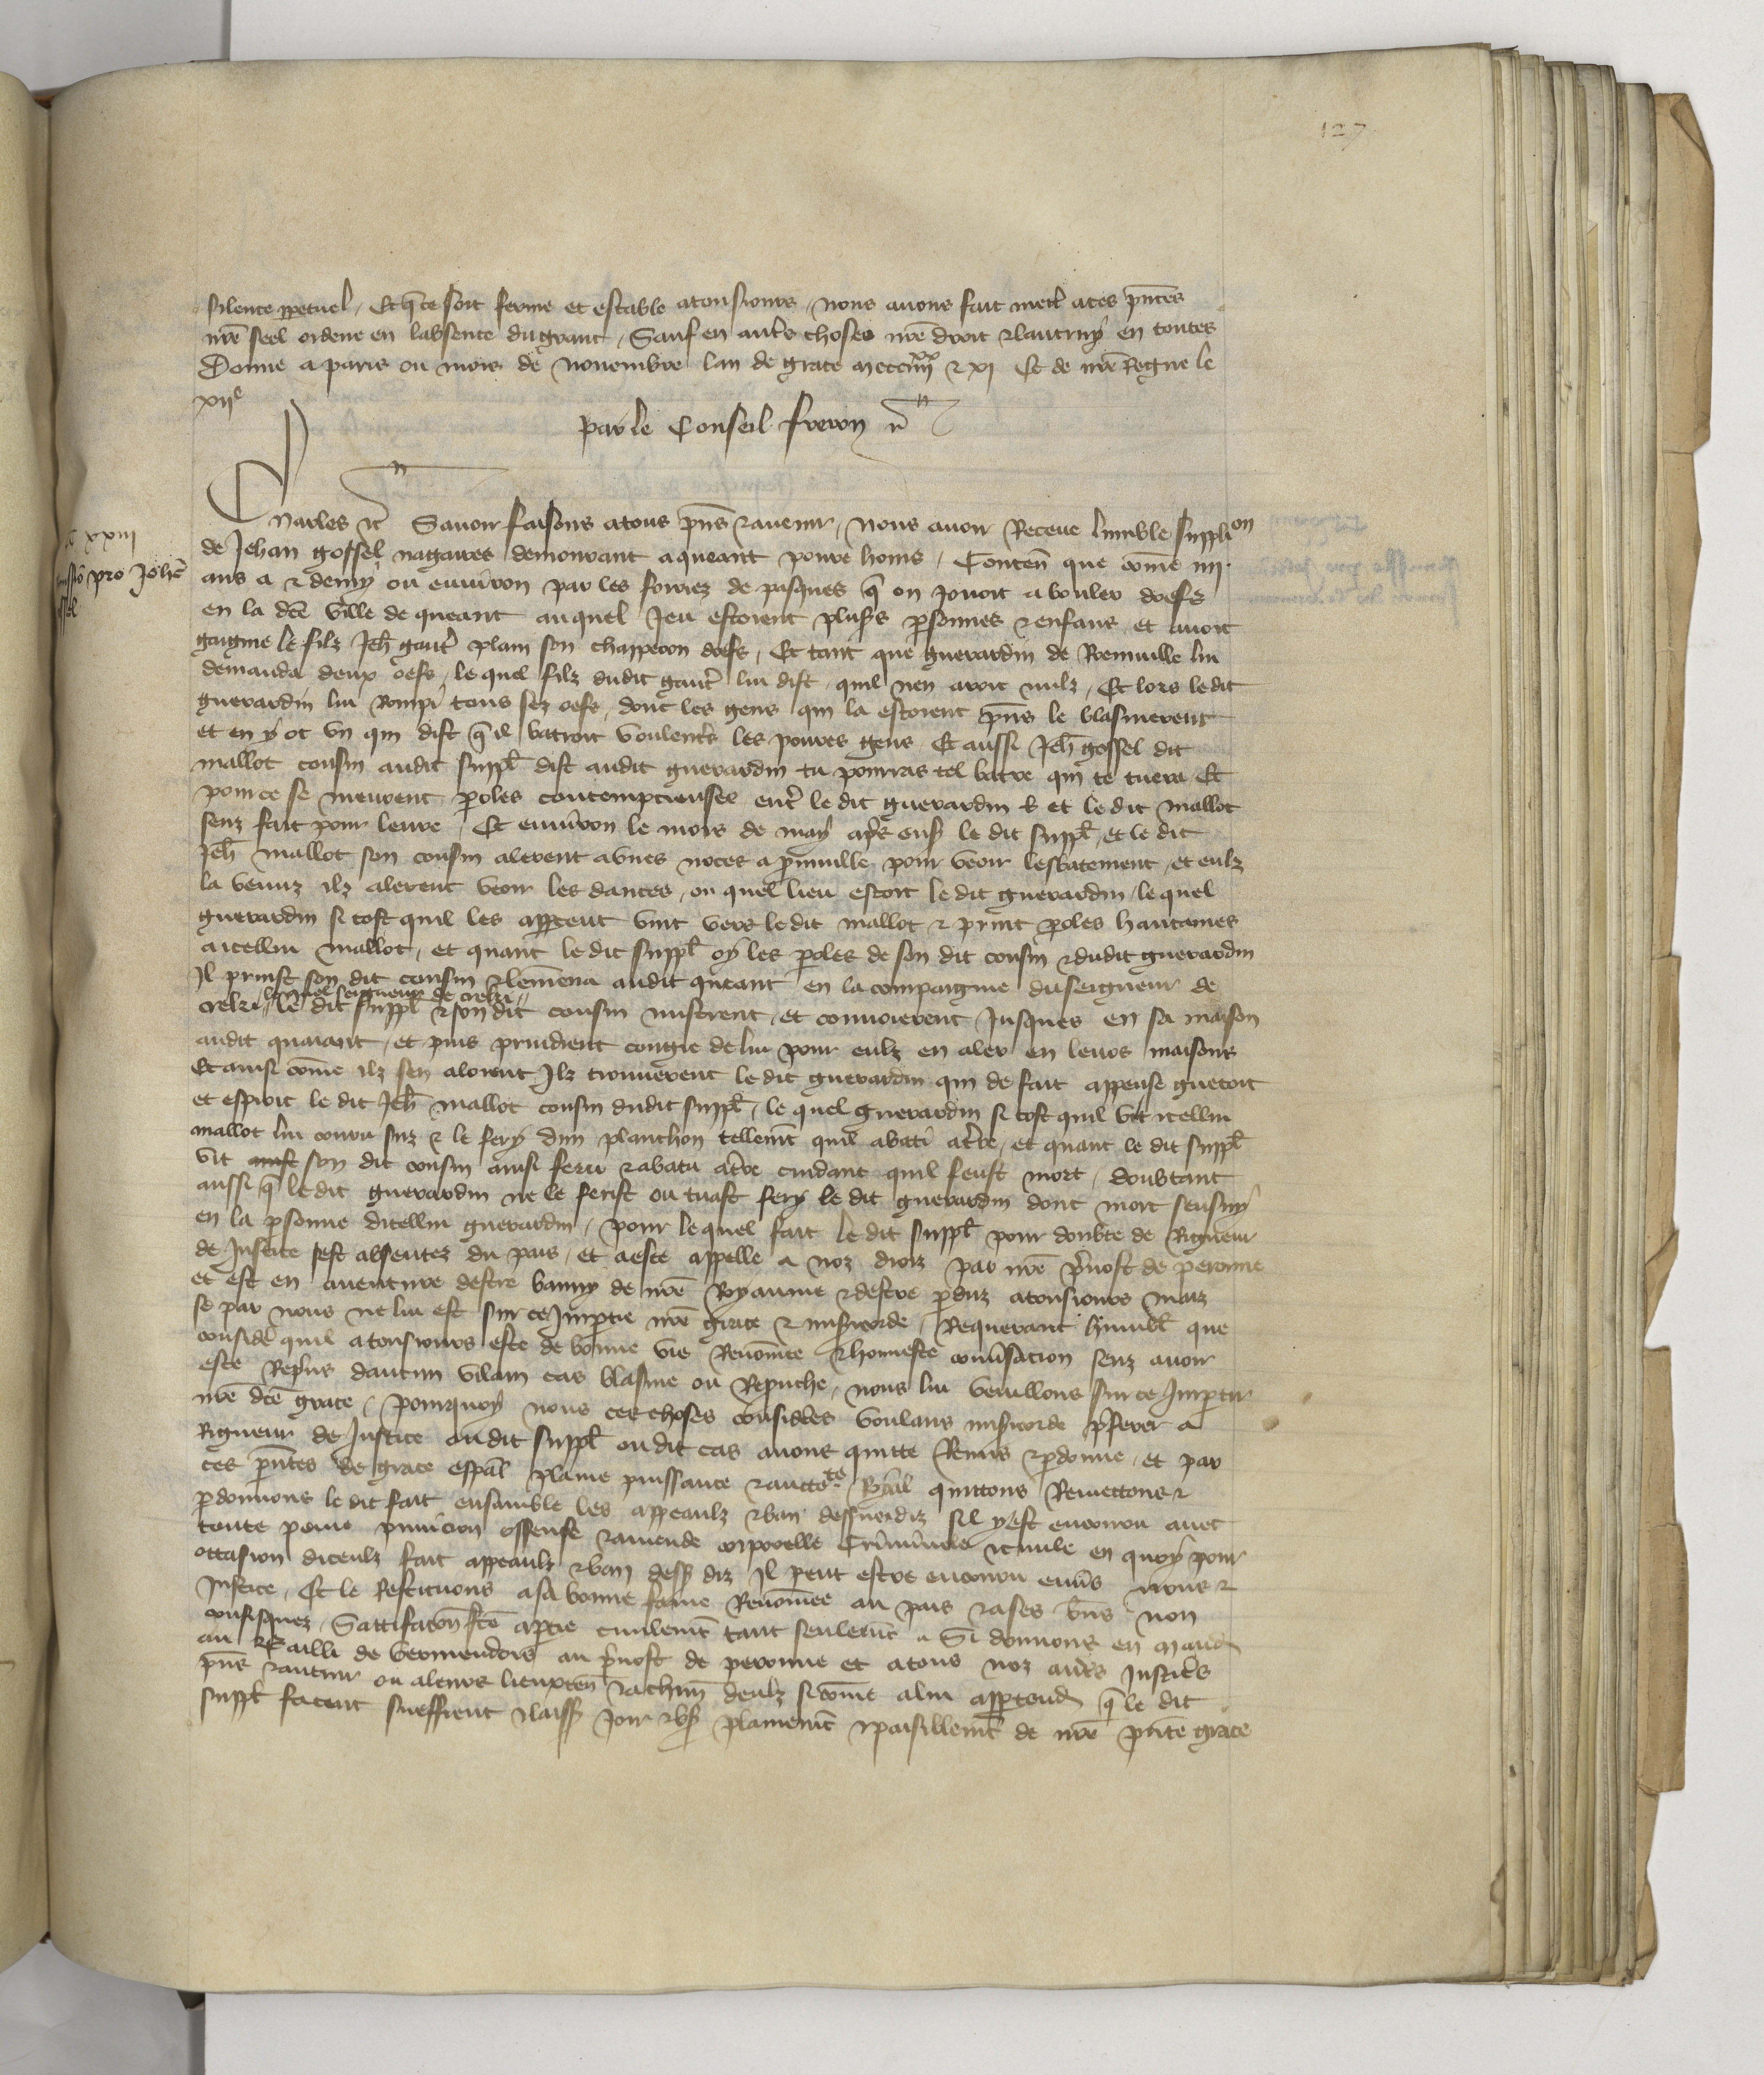 127
silence ppetuel. Et q̄ ce soit ferme et estable atousiours nous auons fait mett̉ a ces p̄ntes
nr̄e seel ordene en labsence du grant. Sauf en autr̉s choses nr̄e droit & lautruy en toutes
Donne a paris ou mois de nouembre lan de grace mccciiiixx & xi Et de nr̄e Regne le
xiie
Par le Conseil Freron n̄
Charles etc̄ Sauoir faisons a tous p̄ns & auenir, nous auoir Receue lumble supplion
de Jehan gossel nagaires demourant a queant poure homs, Conten̄ que com̄e iiii.
xxiii
pro Joh̄e
ans a & demy ou enuiron par les foiriez de pasques q̄ on jouoit a bouler doefs
en la dc̄e ville de queant auquel Jeu estoient plus̉s p̱sonnes & enfans et auoit
gaigne le filz Jeh̄ gaut̉ plain son chapperon doefs, Et tant que guerardin de Remuille lui
demanda deux oefs, le quel filz dudit gaut̉ lui dist quil nen auoit nulz, Et lors ledit
guerardin lui Rompi tous sez oefs, dont les gens qui la estoient p̄ns le blasmerent
et en y ot vn qui dist q̄ il batroit voulent̉s les poures gens Et aussi Jeh̄ gossel dit
mallot cousin audit suppl̄ dist audit guerardin tu pourras tel batre qui te tuera Et
pour ce se meurent p̱oles contempcieuses ent̉ le dit guerardin R et le dit mallot
senz fait pour leure, Et enuiron le mois de may apr̉s ens̉ le dit suppl̄ et le dit
Jeh̄ mallot son cousin alerent a vnes noces a p̱nuille pour veoir lesbatement, et eulz
la venuz ilz alerent veoir les dances, ou quel lieu estoit le dit guerardin, le quel
guerardin si tost quil les app̱ceut vint vers le dit mallot & print p̱oles hautaines
a icellui mallot, et quant le dit suppl̄ oy les p̱oles de son dit cousin & dudit guerardin
Il prinst son dit cousin & lem̄ena audit queant en la compaignie du seigneur de
lequel seigneur de crelzi
crelzi le dit suppl̄ & son dit cousin misrent, et conuoierent Jusques en sa maison
audit queaiant, et puis prindrent congie de lui pour eulz en aler en leurs maisons
Et ainsi com̄e ilz sen aloient Ilz trouuerent le dit guerardin qui de fait appense guetoit
et espioit le dit Jeh̄ mallot cousin dudit suppl̄, le quel guerardin si tost quil vit icellui
mallot lui couru suz & le fery dun planchon tellemt̄ quil abati a tr̉re, et quant le dit suppl̄
vit son dit cousin ainsi feru & abatu a tr̉re cuidant quil feust mort, doubtant
aussi q̄ le dit guerardin ne le ferist ou tuast fery le dit guerardin dont mort sensuy
en la p̱sonne dicellui guerardin, pour le quel fait le dit suppl̄ pour doubte de Rigueur
de Justice sest absentez du pais, et a este appelle a noz droiz par nr̄e p̉uost de peronne
et est en auenture destre banny de nr̄e Royaume & destre p̱duz a tousiours maiz
se par nous ne lui est sur ce Imp̱tie nr̄e grace & mis̉icorde, Requerant humbl̄ que
consider̉ quil a tousiours este de bonne vie Renom̄ee & honneste conủsacion senz auoir
este Repris daucun vilain cas blasme ou Reprouche, nous lui veuillons sur ce Imp̱tir
nr̄e dc̄e grace, pourquoy nous ces choses consider̉es voulans mis̉icorde p̉ferer a
Rigueur de Justice audit suppl̄ ou dit cas auons quitte Remis & p̱donne, et par
ces p̄ntes de grace esp̄al plaine puissance & auctote Royal quittons Remettons &
p̱donnons le dit fait ensamble les appeaulz & ban dessusdiz sil y est encouru auec
toute peine punicion offense & amende corporelle Criminele & ciuile en quoy pour
occasion diceulz fait appeaulz & ban dess̉ diz Il peut estre encouru enủs nous &
Justice, Et le Restituons a sa bonne fame Renom̄ee au pais & a ses biens non
confisquez, Sattisfacōn fc̄e a p̱tie ciuilemt̄ tant seulemt̄ Si donnons en mand̄
au Bailli de vermendois au p̉uost de peronne et a tous noz autr̉s Justic̉s
p̄ns & auenir ou a leurs lieuxten̄ & a chm̄ deulz si com̄e a lui app̱tend̄ q̄ le dit
suppl̄ facent sueffrent & laiss̉ joir & us̉ plainemt̄ & paisiblemt̄ de nr̄e p̄nte grace